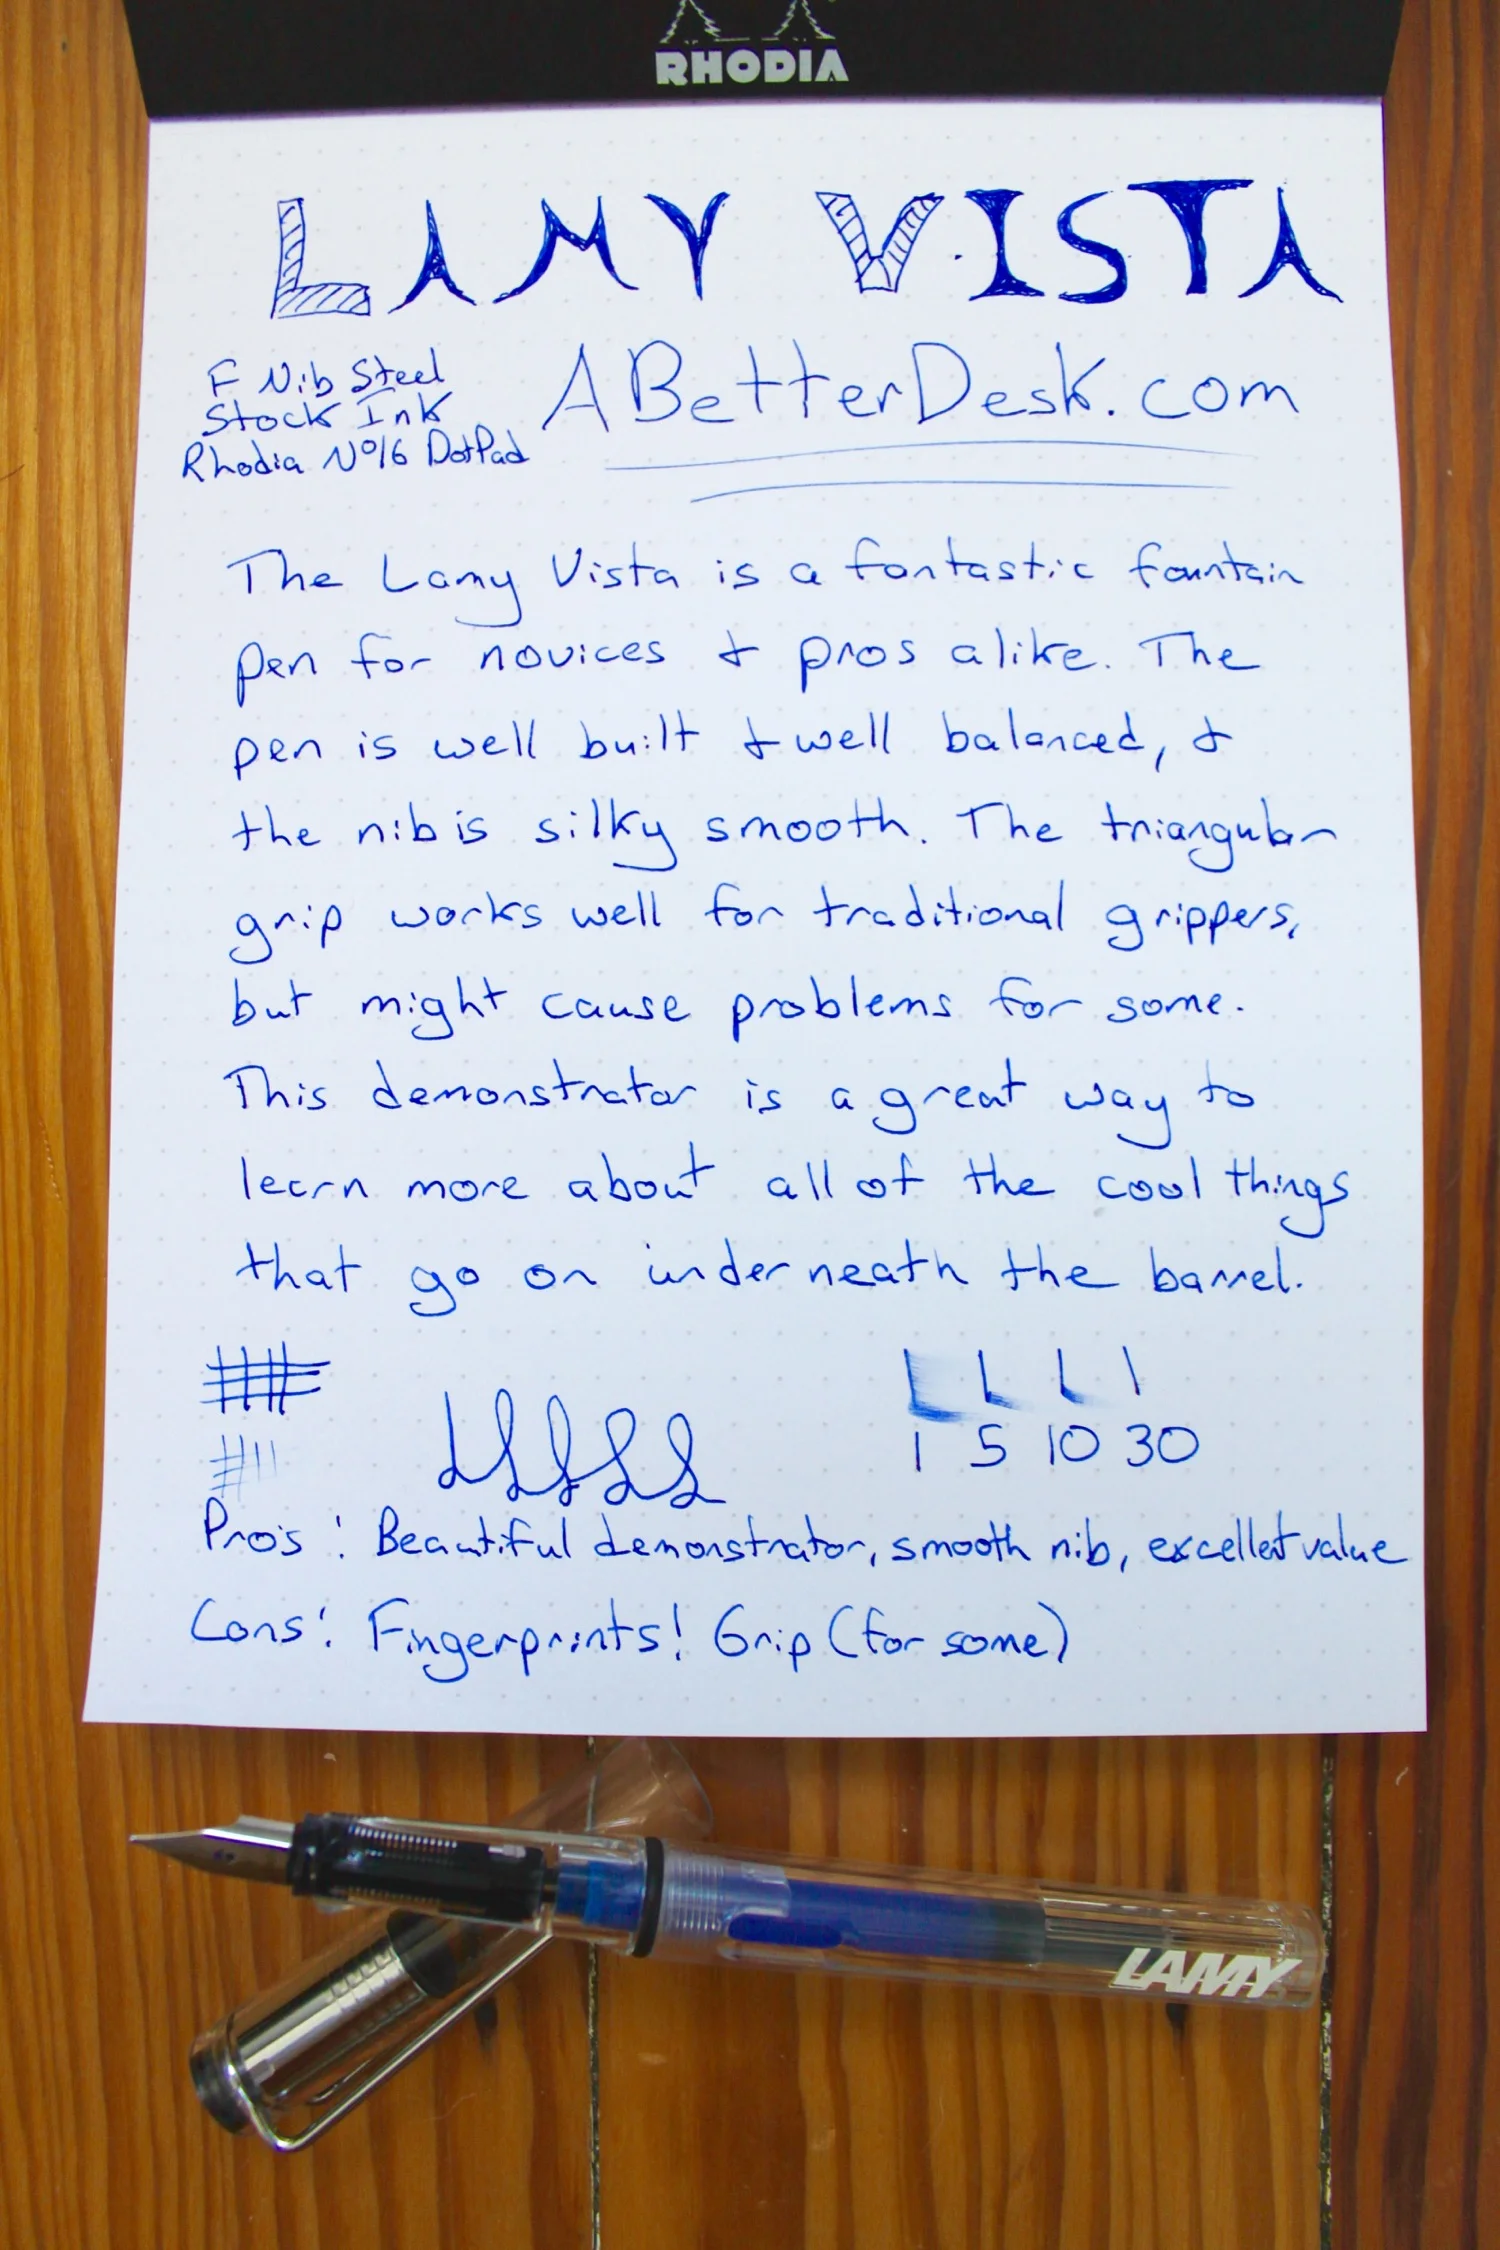 RHODIA
LAMY VISTA
F Nib Steel
Stock Ink
Rhodia Nº16 DotPad
ABetterDesk.com
The Lamy Vista is a fantastic fountain
pen for novices & pros alike. The
pen is well built & well balanced, &
the nib is silky smooth. The triangular
grip works well for traditional grippers,
but might cause problems for some.
This demonstrator is a great way to
learn more about all of the cool things
that go on underneath the barrel.
1 5 10 30
Pro's: Beautiful demonstrator, smooth nib, excellent value
Cons: Fingerprints! Grip (for some)
LAMY